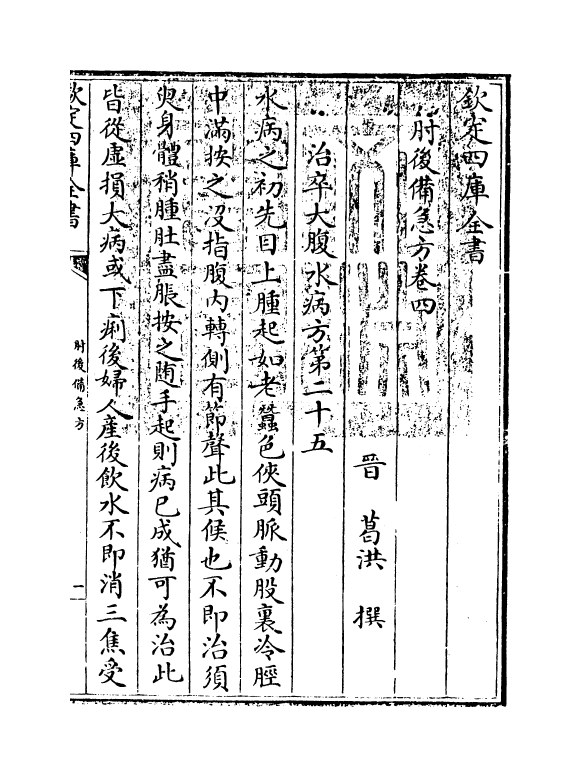 欽定四庫全書
肘後備急方卷四
晉 葛洪 撰
治卒大腹水病方第二十五
水病之初先目上腫起如老蠶色俠頭脈動股裏冷脛
中滿按之沒指腹內轉側有節聲此其候也不即治須
臾身體稍腫肚盡脹按之隨手起則病已成猶可為治此
皆從虛損大病或下痢後婦人產後飲水不即消三焦受
欽定四庫全書
肘後備急方
一